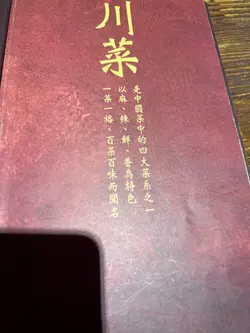 川菜
是中國菜中的四大菜系之一
以麻、辣、鮮、香為特色
一菜一格、百菜百味而聞名